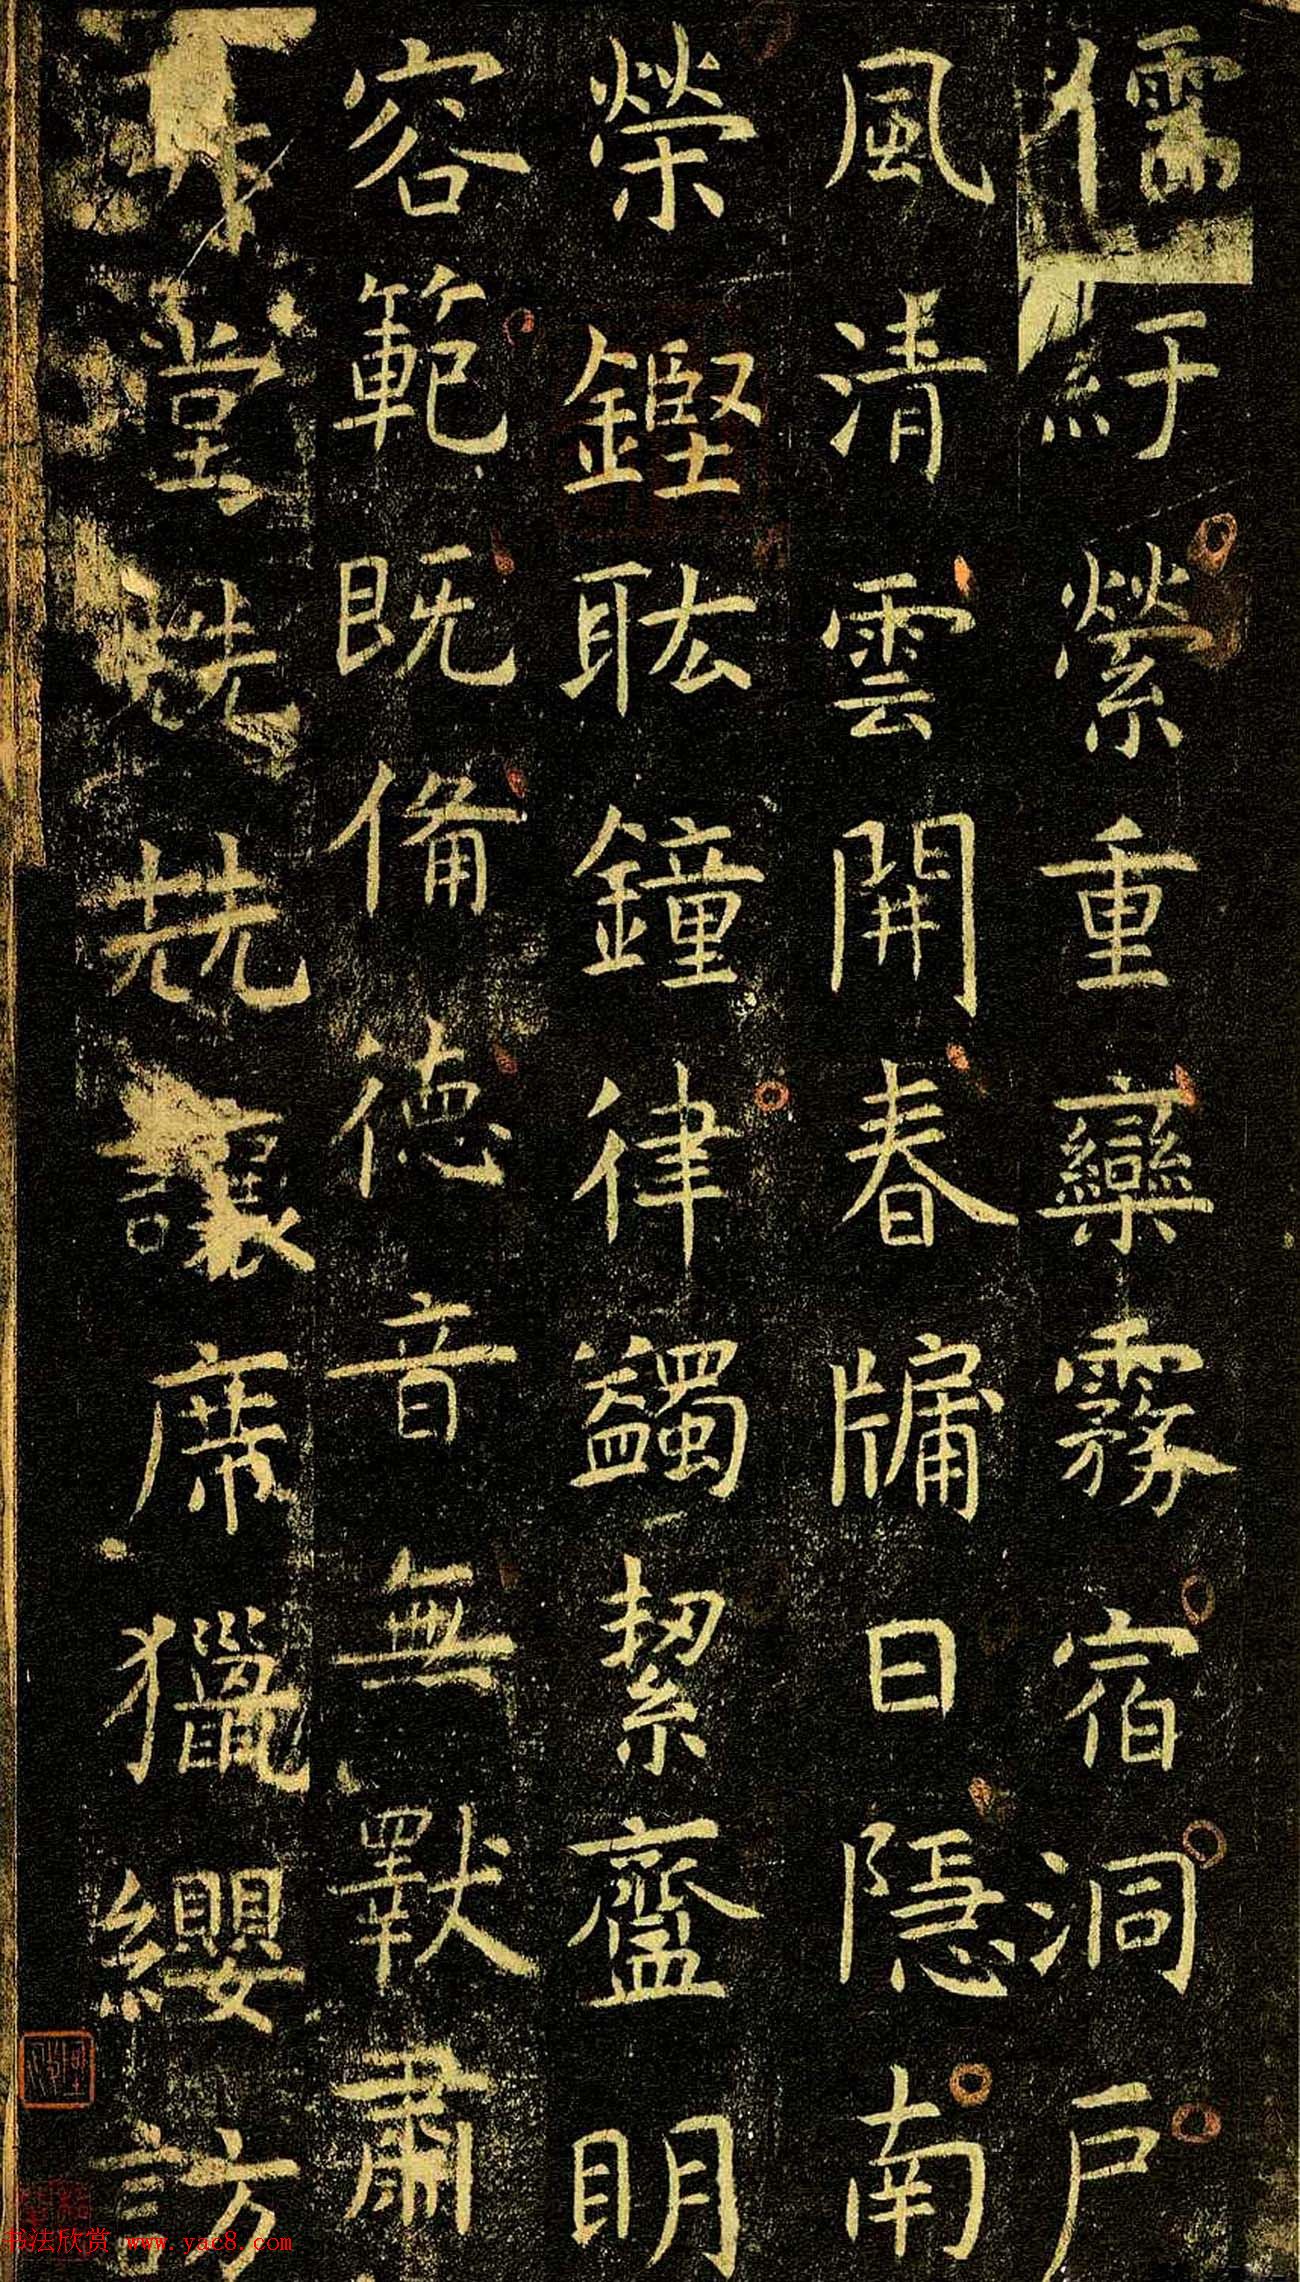 儒紆縈重欒霧宿洞戶
風清雲開春牖日隱南
榮鏗耾鐘律蠲絜齍明
容範既備德音無斁肅
堂兟兟讓席獵纓訪
书法欣赏 www.yac8.com